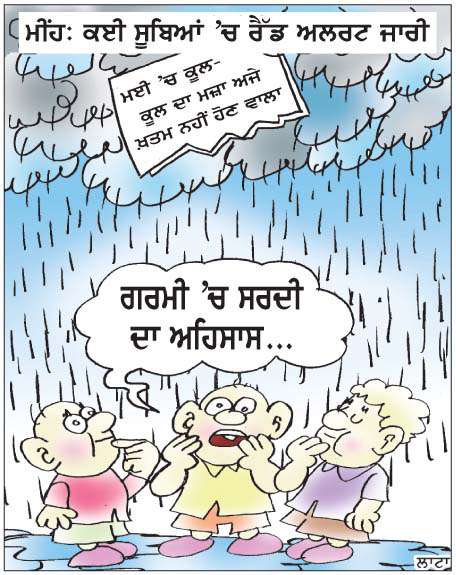 ਮੀਂਹ: ਕਈ ਸੂਬਿਆਂ ’ਚ ਰੈੱਡ ਅਲਰਟ ਜਾਰੀ
ਮਈ ’ਚ ਕੂਲ-
ਕੂਲ ਦਾ ਮਜ਼ਾ ਅਜੇ
ਖ਼ਤਮ ਨਹੀਂ ਹੋਣ ਵਾਲਾ
ਗਰਮੀ ’ਚ ਸਰਦੀ
ਦਾ ਅਹਿਸਾਸ...
ਲਾਟਾ